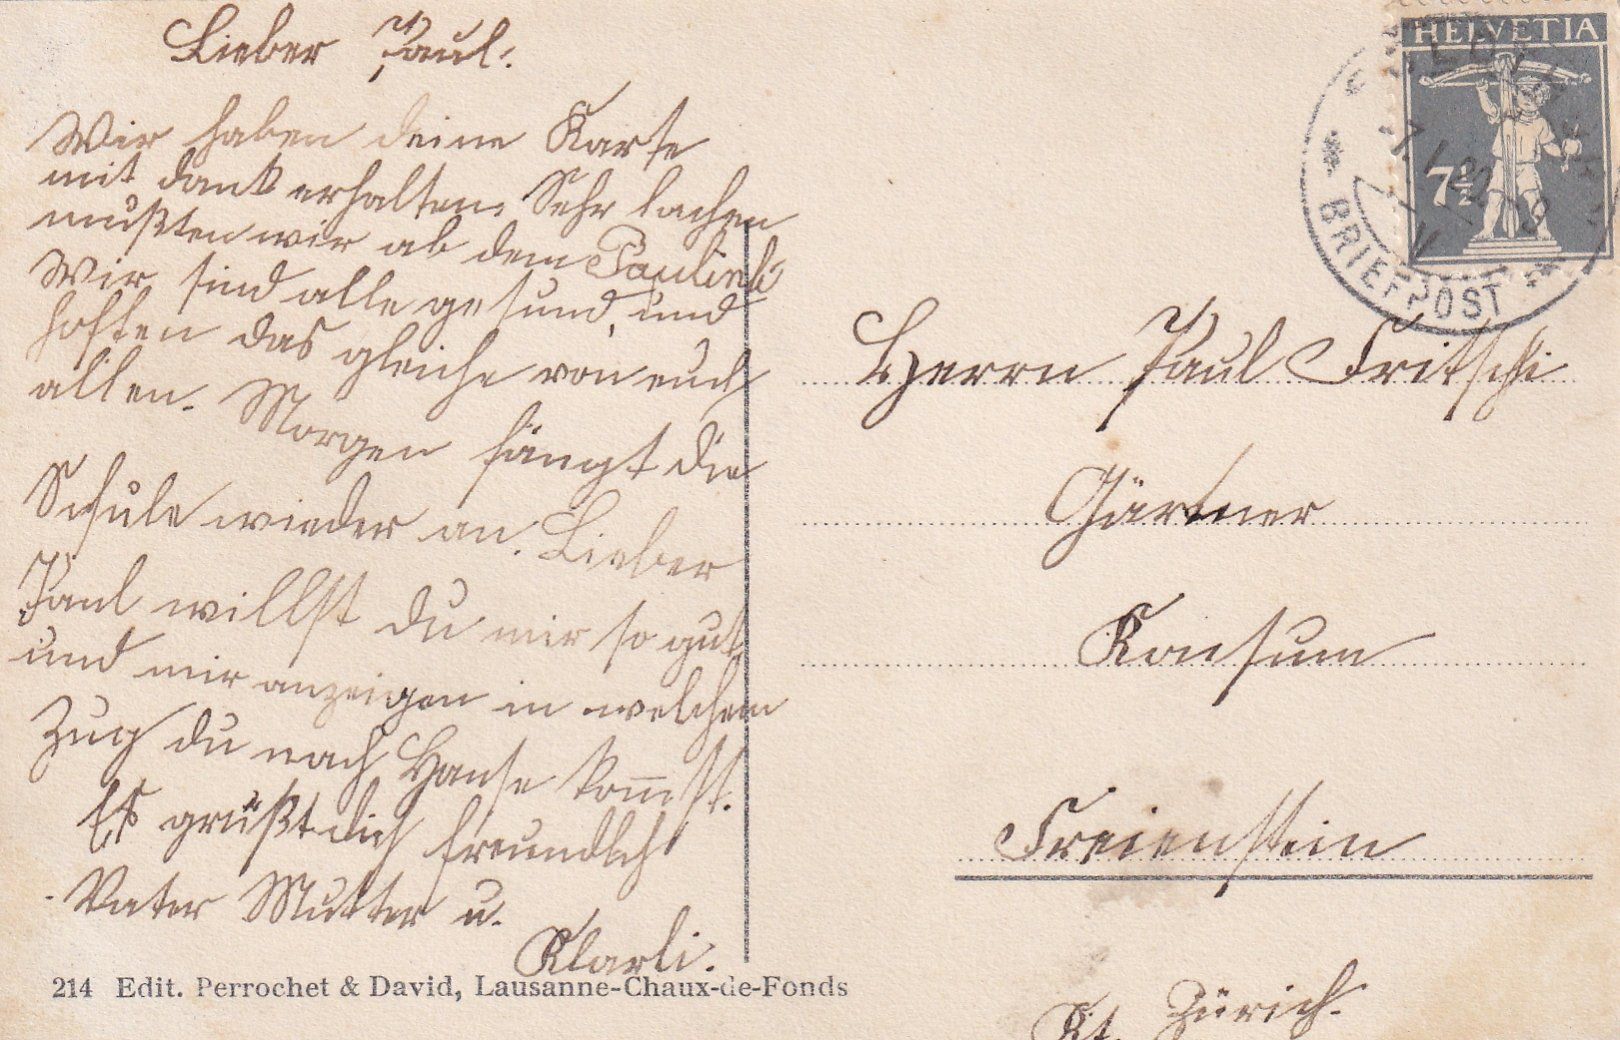 Lieber Paul!
Wir haben deine Karte
mit dank erhalten. Sehr lachen
mußten wir ab dem Paulineli
Wir sind alle gesund, und
hoffen das gleiche von euch
allen. Morgen fängt die
Schule wieder an. Lieber
Paul willst du mir so gut
und mir anzeigen in welchem
Zug du nach Hause kom̅st.
Es grüßt dich freundlich
Vater Mutter u.
Klarli.
214 Edit. Perrochet & David, Lausanne-Chaux-de-Fonds
HELVETIA
7½
BRIEFPOST
Herrn Paul Fritschi
Gärtner
Konsum
Freienstein
Kt. Zürich.